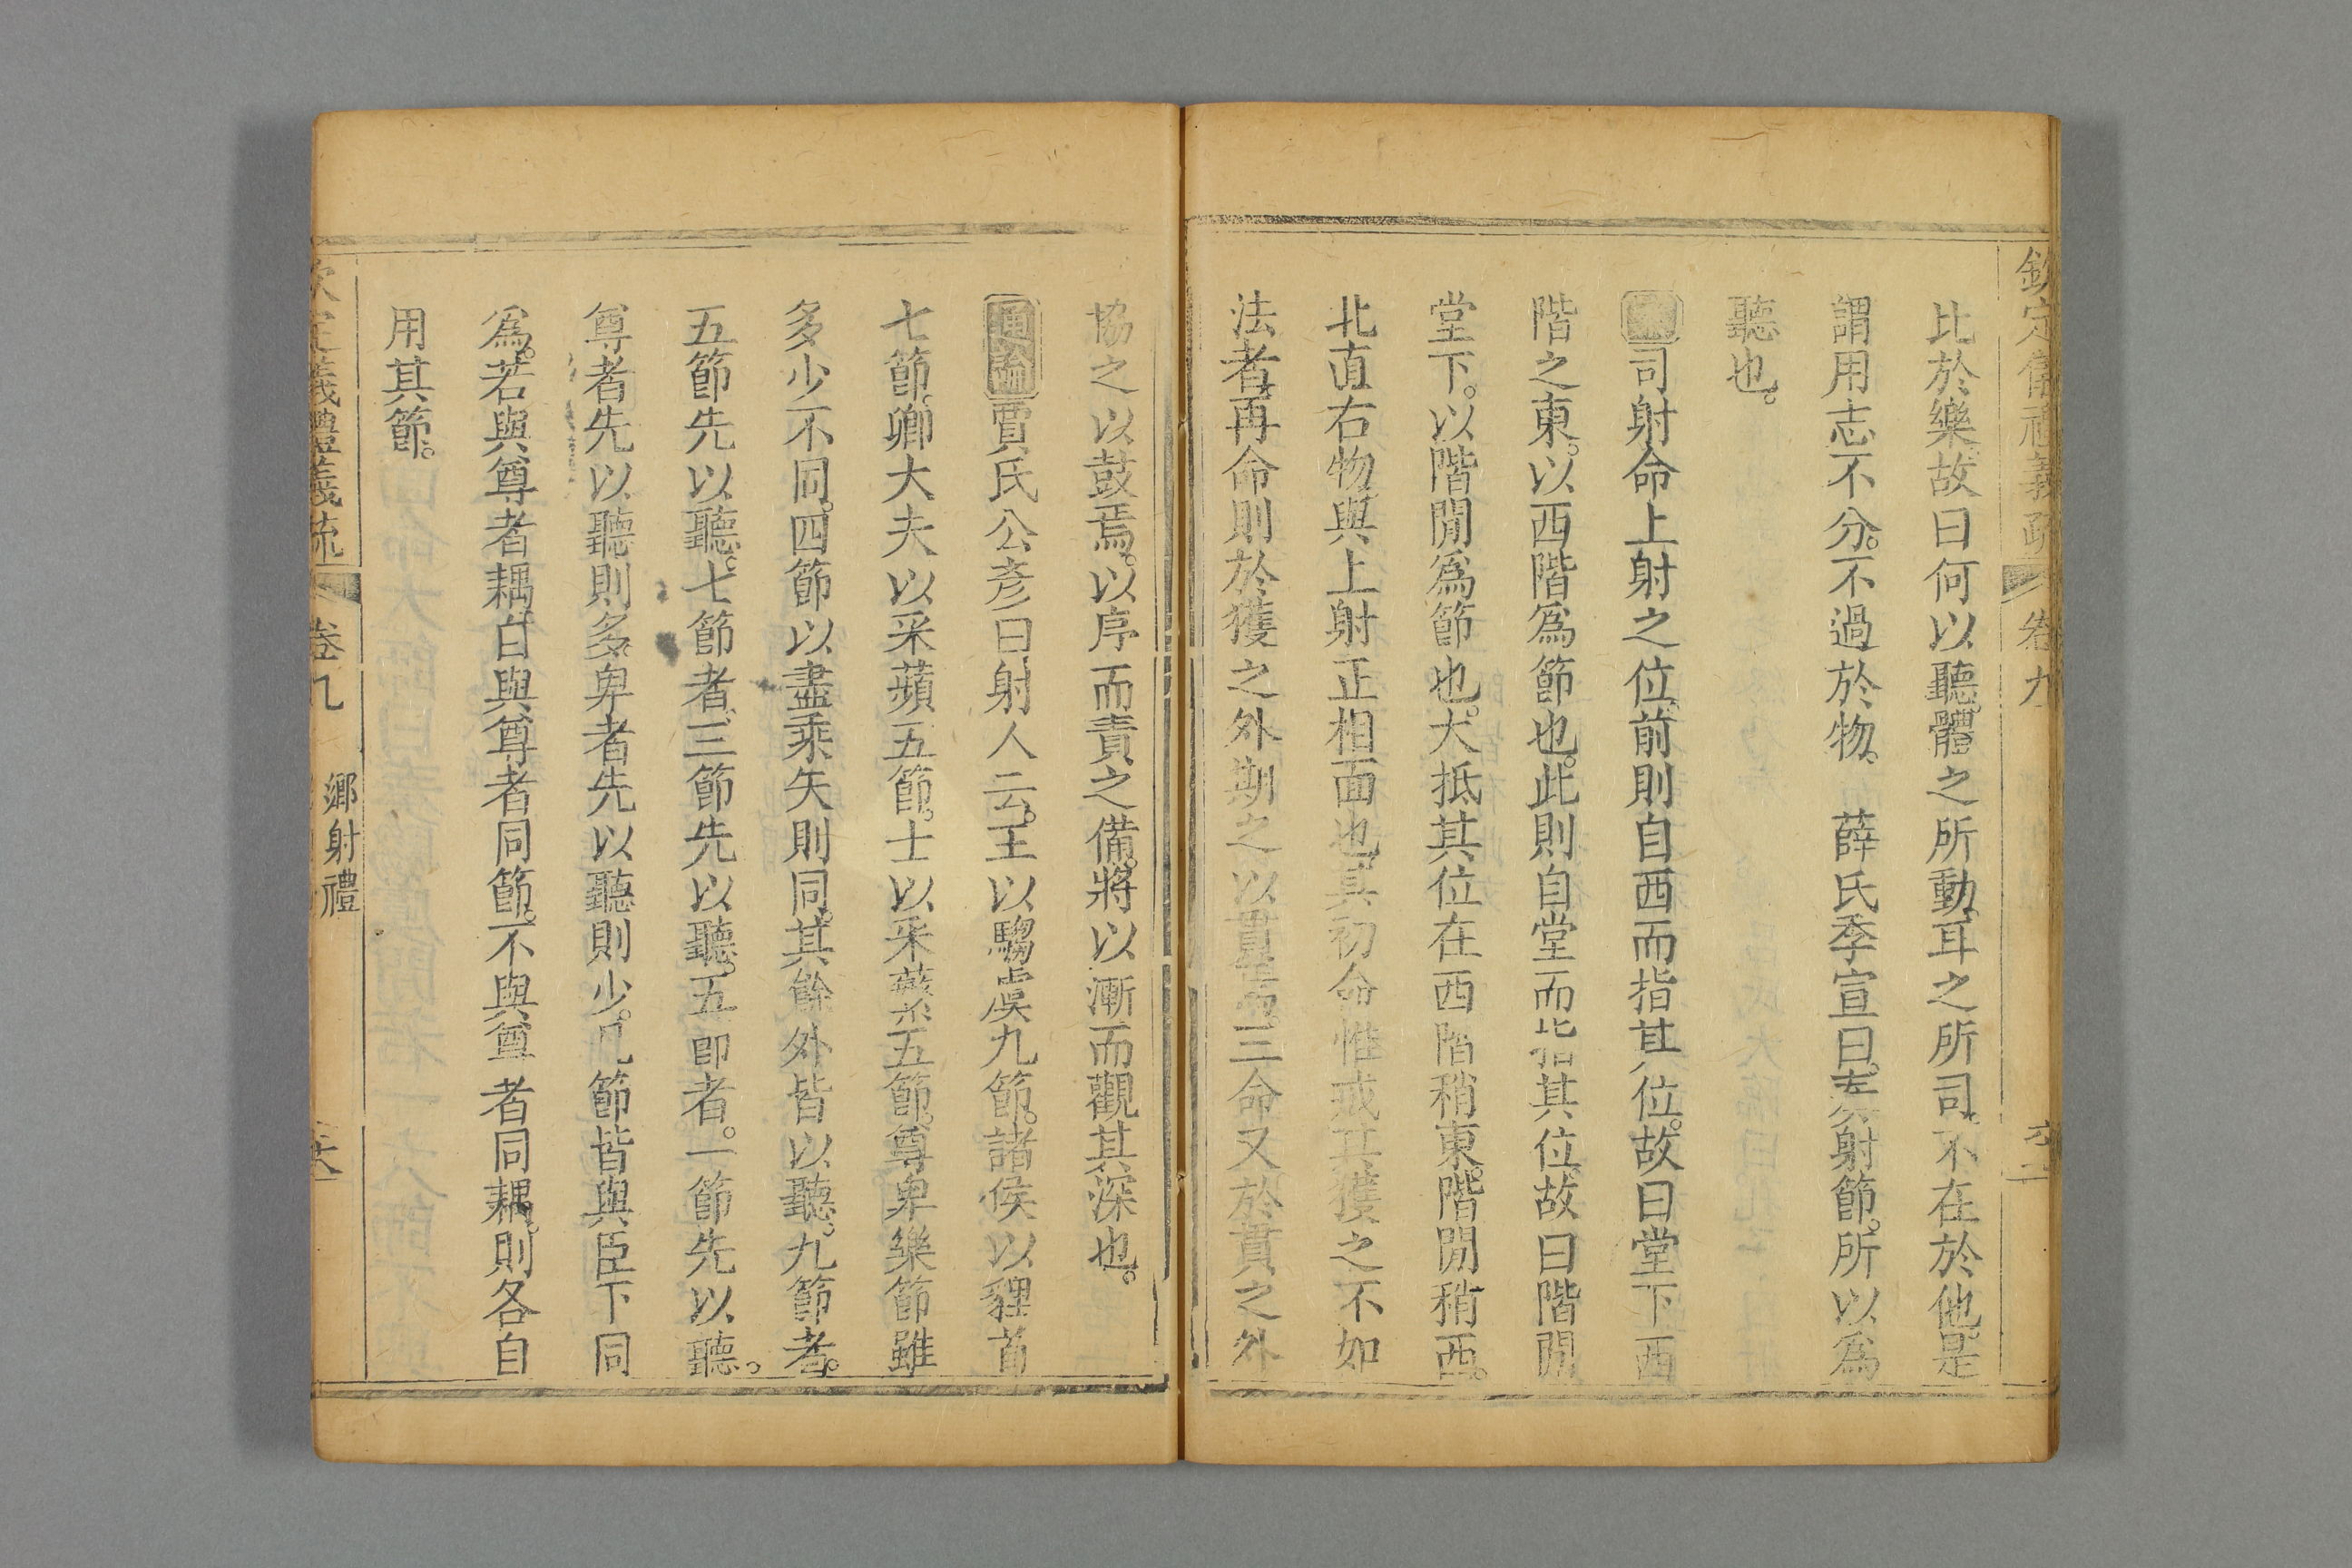 欽定儀禮義疏 卷九
比於樂故曰何以聽體之所動耳之所司不在於他是
謂用志不分。不過於物 薛氏季宣曰。 射節。所以為
聽也。
案司射命上射之位前則自西而指其位。故曰堂下西
階之東。以西階為節也。此則自堂而指其位故曰階閒
堂下。以階閒為節也。大抵其位在西階稍東。階閒稍西。
北直右物與上射正相面也其初命惟戒其獲之不如
法者再命則於獲之外期之以貫 三命又於貫之外
協之以鼓焉。以序而責之備。將以漸而觀其深也。
通論賈氏公彥曰射人云。王以騶虞九節。諸侯以貍首
七節。卿大夫以采蘋五節。士以采蘩五節。尊卑樂節雖
多少不同。四節以盡乘矢則同。其餘外皆以聽。九節者。
五節先以聽。七節者三節先以聽。五節者。一節先以聽。
尊者先以聽則多卑者先以聽則少。凡節皆與臣下同
為。若與尊者耦自與尊者同節。不與尊者同耦。則各自
用其節。
欽定儀禮義疏 卷九 鄉射禮